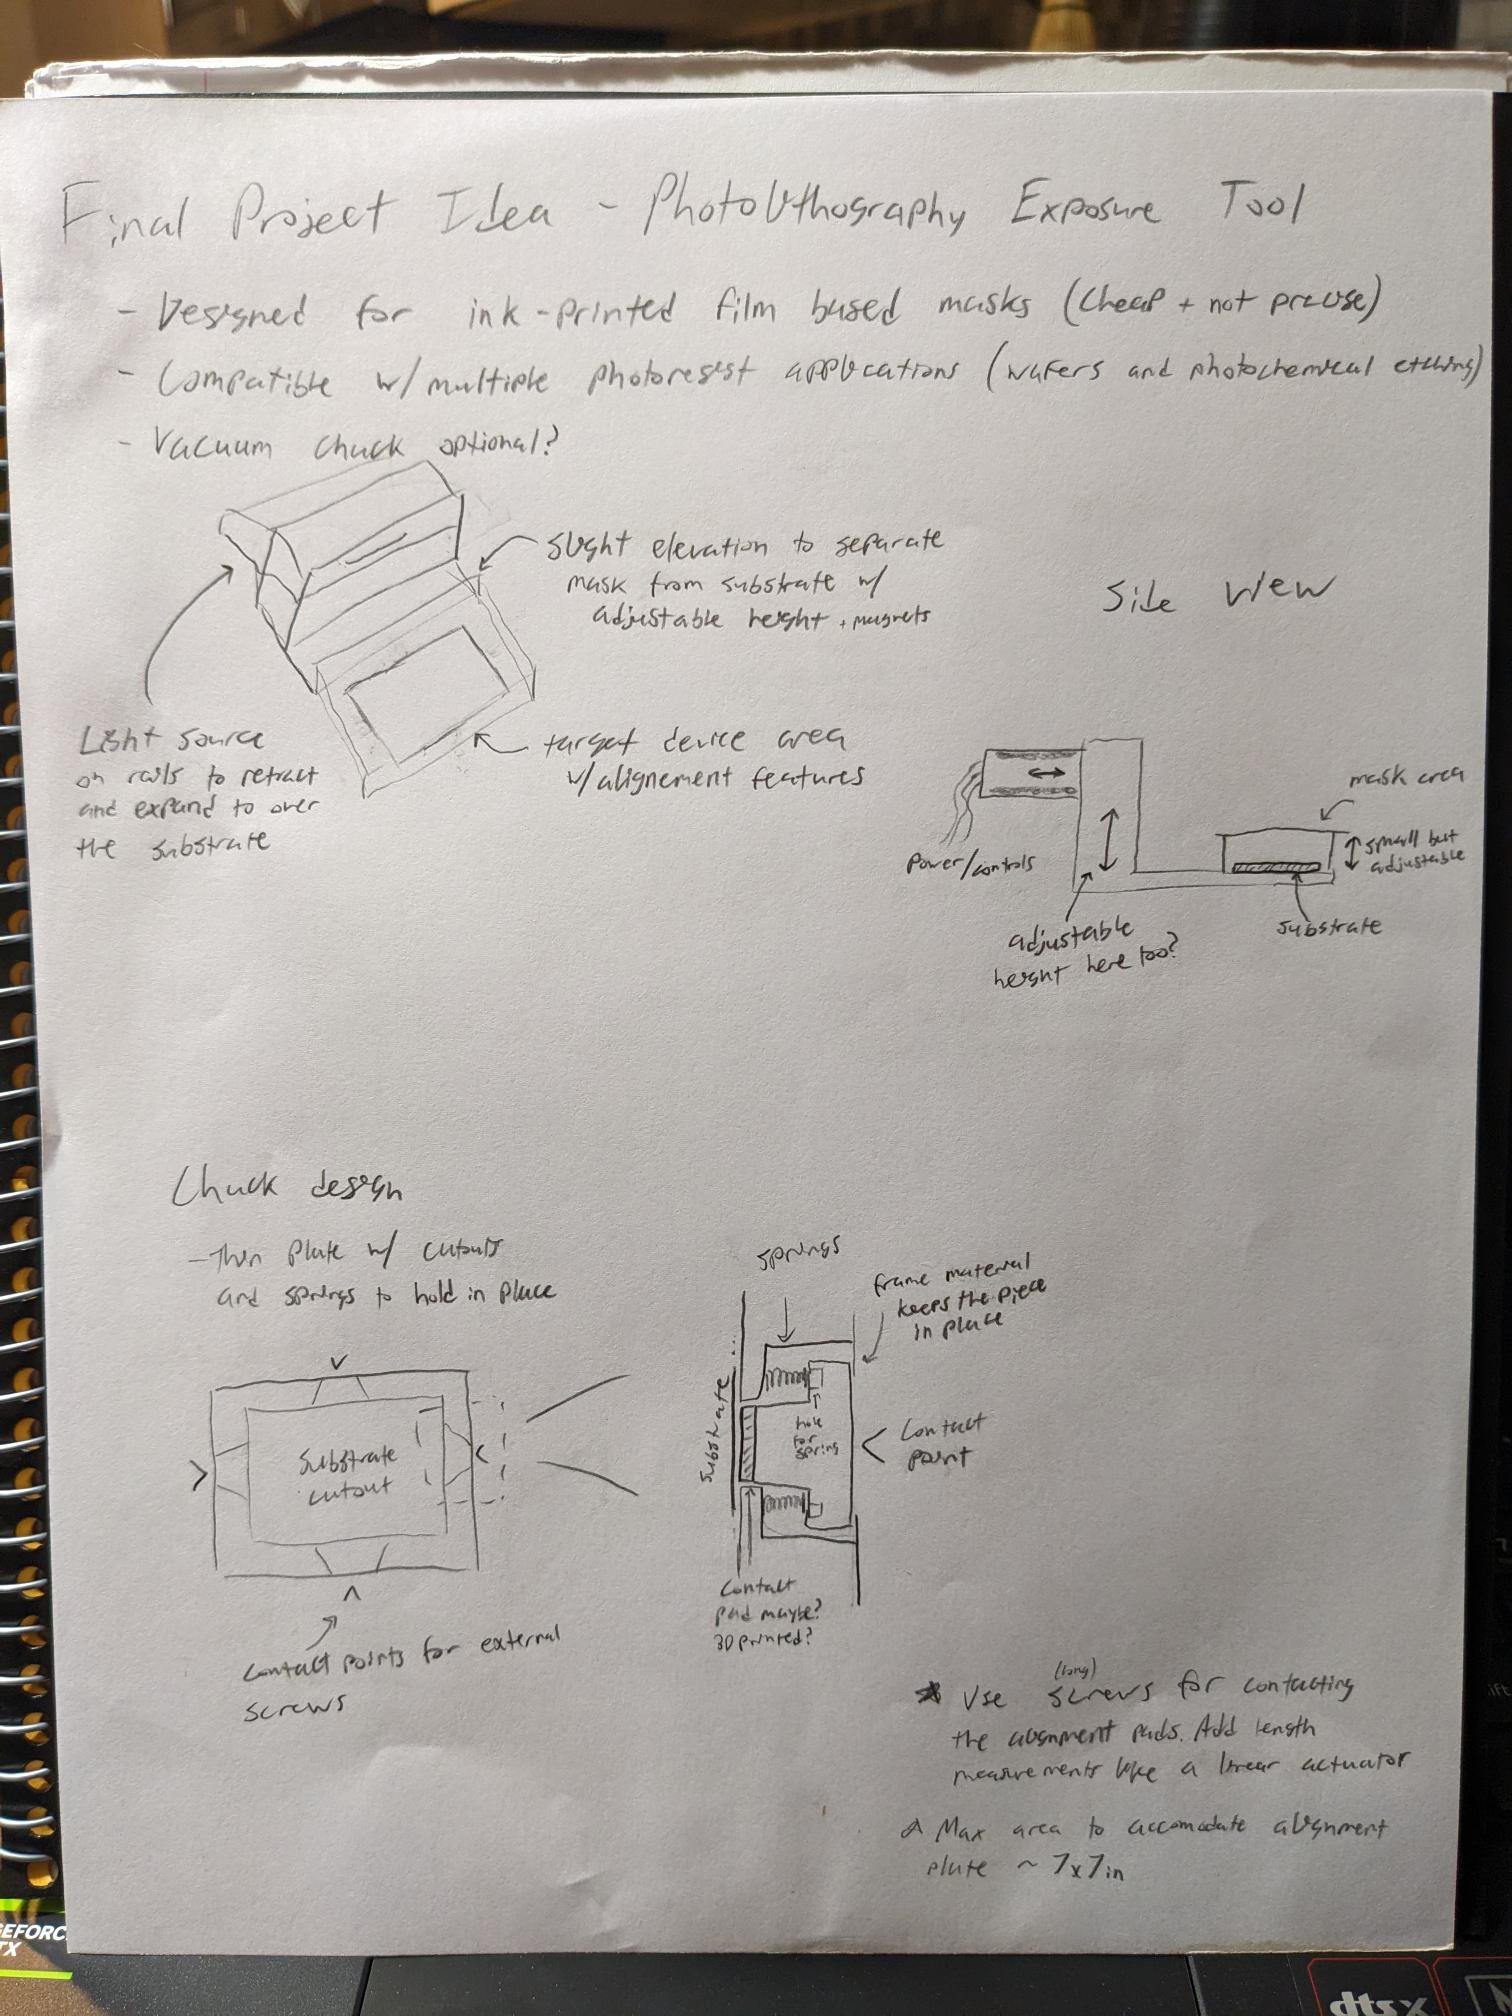 Final Project Idea - Photolithography Exposure Tool
- Designed for ink-printed film based masks (cheap + not precise)
- Compatible w/ multiple photoresist applications (wafers and photochemical etching)
- Vacuum chuck optional?
slight elevation to separate
mask from substrate w/
adjustable height + magnets
Light source
on rails to retract
and expand to over
the substrate
target device area
w/ alignement features
Side view
Power/controls
adjustable
height here too?
mask area
small but
adjustable
substrate
Chuck design
- Thin plate w/ cutouts
and springs to hold in place
substrate
cutout
contact points for external
screws
springs
frame material
keeps the piece
in place
substrate
hole
for
spring
contact
point
contact
pad maybe?
3D printed?
(long)
* Use screws for contacting
the alignment pads. Add length
measurements like a linear actuator
Max area to accomodate alignment
plate ~ 7x7in
GEFORC
TX
dts x